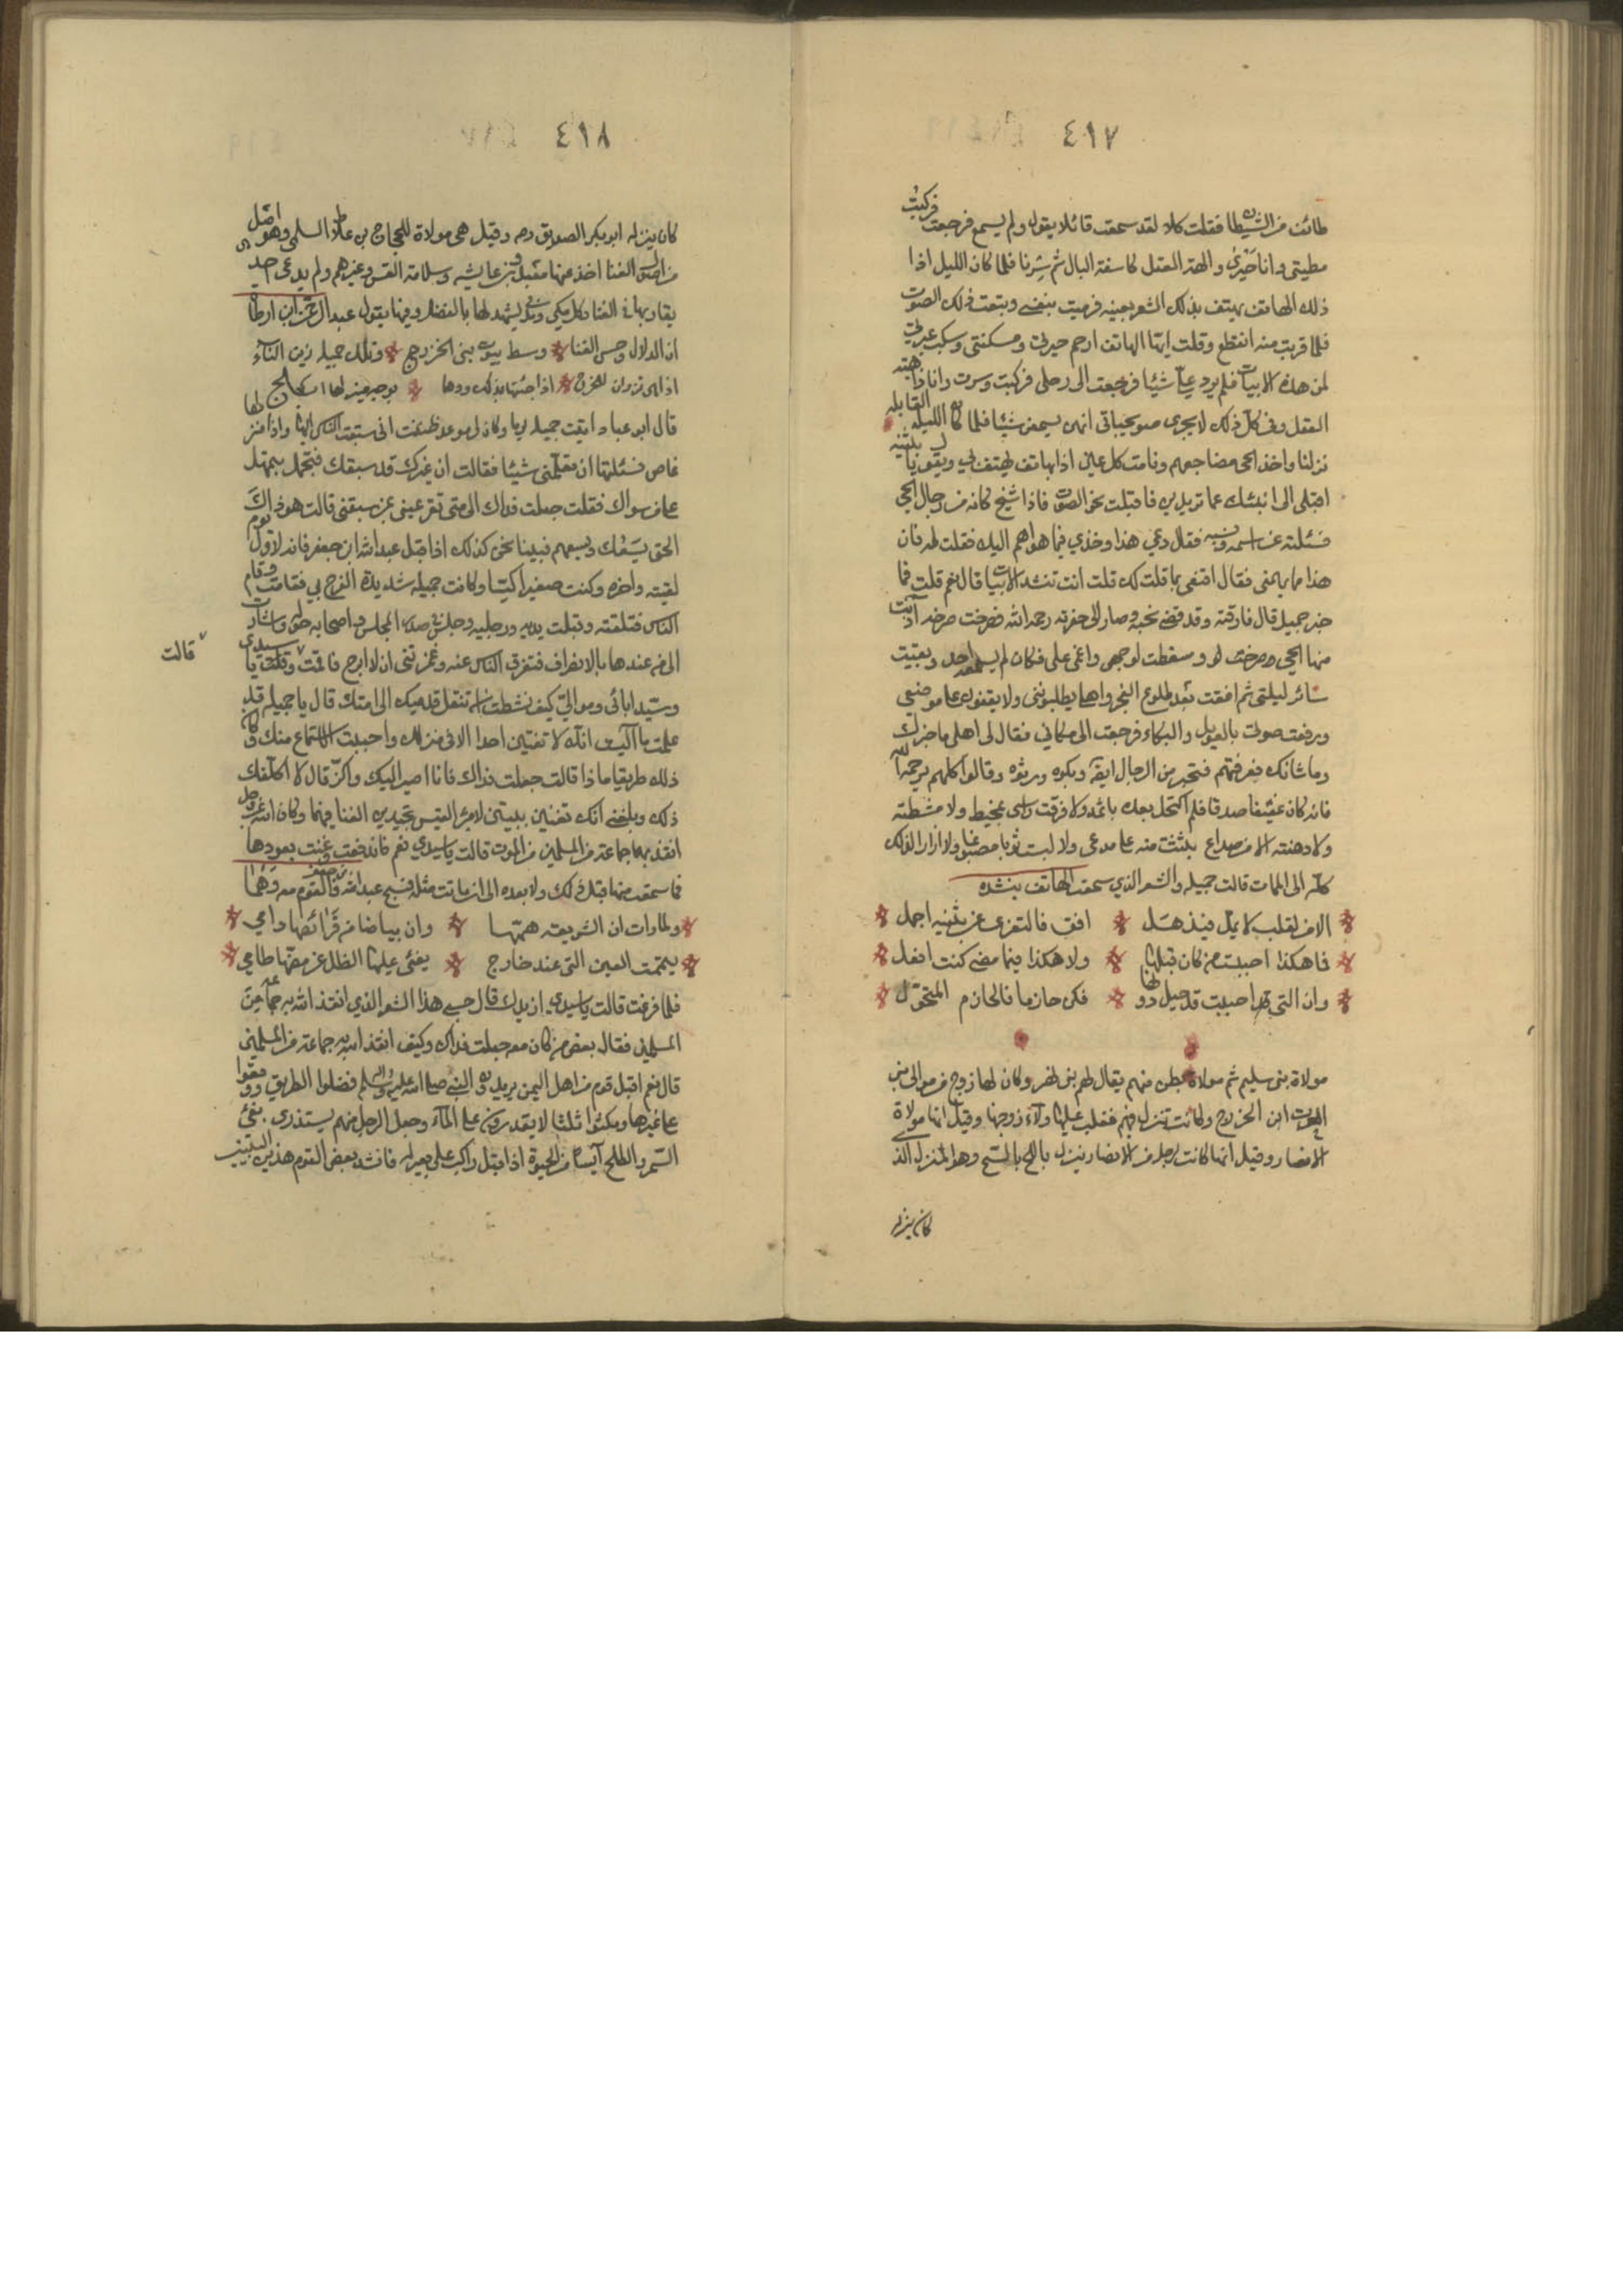 ٤١٧
طائف من الشيطان فقلت كلا لقد سمعت قائلا يقول ولم يسمع فرجعت فركبت
مطيتي وانا حيرى والهة العقل كاسفة البال ثم سرنا فلما كان الليل اذا
ذلك الهاتف يهتف بذلك الشعر بعينه فرميت بنفسي وتبعت ذلك الصوت
فلما قربت منه انقطع وقلت ايها الهاتف ارحم حيرتي ومسكنتي وسكب عبرتي
لمن هذه الابيات فلم يرد على شيئا فرجعت الى رحلي فركبت وسرت وانا ذاهبة
العقل وفي كل ذلك لا يخبرني صويحباتي انهن يسمعن شيئا فلما كان الليلة القابلة
نزلنا واخذ الحي مضاجعهم ونامت كل عين اذا بهاتف يهتف لي ويقول يا بثينة
اقبلي الى انبئك عما تريدين فاقبلت نحو الصوت فاذا شيخ كانه من رجال الحي
فسئلته عن اسمه ونسبه فقال دعي هذا وخذي فيما هو اهم اليك فقلت له فان
هذا مما يهمني فقال اقنعي بما قلت لك قلت انت تنشد الابيات قال نعم قلت فما
خبر جميل قال فارقته وقد قضى نحبه وصار الى حفرته رحمه الله فصرخت صرخة آذنت
منها الحي وصرخت له وسقطت لوجهي واغمي علي فكان لم يسمعه احد وبقيت
سائر ليلتي ثم افقت بعد طلوع الفجر واهلي يطلبونني ولا يقفون على موضعي
ورفعت صوتي بالعويل والبكاء فرجعت الى مكاني فقال لي اهلي ما خبرك
وما شانك فعرفتهم فتحير من الرجال ايضا وبكوه ورثوه وقالوا كلهم يرحمه الله
فانه كان عفيفا صدقا فلم اكتحل بعده باثمد ولا فرقت راسي بمخيط ولا مشطته
ولا دهنته الا من صداع بلثغت منه على مدعي ولا لبست ثوبا مصبغا ولا ازار الى ذلك
كله الى الممات قالت جميله والشعر الذي سمعت الهاتف ينشده
الا من لقلب لا يمل فيذهل افق فالتعزي عن بثينه اجمل
فما هكذا احببت من كان قبلها ولا هكذا فيما مضى كنت افعل
وان التي قد احببت قد حيل دونها فكن حازما فالحازم المتحول
مولاة بني سليم ثم مولاة بطن منهم يقال لهم بني بهز وكان لها زوج من موالي بني
الحرث ابن الخزرج وكانت تنزل فيهم فغلب عليها ولاء زوجها وقيل انها مولاة
الانصار وقيل انها كانت لرجل من الانصار ينزل بالسنح وهو المنزل الذي
كان ينزله
٤١٨
كان ينزله ابو بكر الصديق رضه وقيل هي مولاة للحجاج بن علاط السلمي وهو اصل
من اصول الغنا اخذ عنها معبد وابن عايشه وسلامة القس وغيرهم ولم يدع احد
يقاربها في الغنا وكل مكي ومدني يشهد لها بالفضل وفيها يقول عبد الرحمن ابن ارطاه
ان الدلال وحسن الغنا وسط بيوت بني الخزرج وتلك جميله زين النساء
اذا هي تزدان للمخرج اذا جئتها بذلت ودها بوجه منير لها ابلج
قال ابو عباد اتيت جميله يوما وكان لي موعد ظننت اني سبقت الناس اليها واذا منزلها
غاص فسئلتها ان تعلمني شيئا فقالت ان غيرك قد سبقك فيجمل بمجهل
على من سواك فقلت جعلت فداك الى متى تفرغيني عن سبقني قالت هو ذاك
الحق يسعك ويسعهم فبينا نحن كذلك اذ اقبل عبد الله ابن جعفر فانه لاول يوم
لقيته واخره وكنت صغيرا كيسا وكانت جميله شديدة الفرح بي فقامت وقام
الناس فتلقته وقبلت يديه ورجليه وجلس في صدر المجلس واصحابه حوله واشارت
الى من عندها بالانصراف فتفرق الناس عنه وغمزتني ان لا ابرح فاقمت وقلت يا سيدي
قالت
وسيد ابائي وموالي كيف نشطت ان تنقل قدميك الى امتك قال يا جميله قد
علمت ما آليت انك لا تغنين احدا الا في منزلك واحببت الاستماع منك وكان
ذلك طريقا ماذا قالت جعلت فداك فانا اصير اليك واكفر قال لا اكلفك
ذلك وبلغني انك تغنين ببيتين لامرئ القيس تجيدين الغنا فيهما وكان الله عز وجل
انقذ بهما جماعة من المسلمين من الموت قالت يا سيدي نعم فاندفعت وغنت بعودها
فما سمعت منها قبل ذلك ولا بعده الى ان ماتت مثله فسبح عبد الله بن جعفر والقوم معه وهما
ولما رات ان الشريعة همها وان بياضا من فرائصها دامي
تيممت العين التي عند ضارج يفئ عليها الظل عرمضها طامي
فلما فرغت قالت يا سيدي ازيدك قال حسبي هذا الشعر الذي انقذ الله به جماعة من
المسلمين فقال بعض من كان معه جعلت فداك وكيف انقذ الله به جماعة من المسلمين
قال نعم اقبل قوم من اهل اليمن يريدون النبي صلى الله عليه واله وسلم فضلوا الطريق ووقعوا
على غيرها ومكثوا ثلثا لا يقدرون على الماء وجعل الرجل منهم يستذري بفئ
السمر والطلح آيسا من الحيوة اذ اقبل راكب على بعير له فانشد بعض القوم هذين البيتين